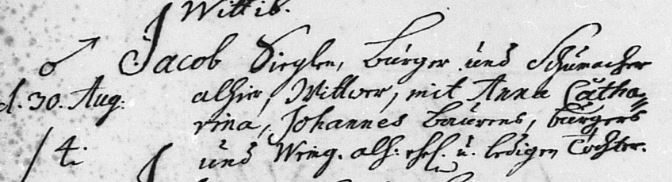 Wittib.
♂ Jacob Sieglen, burger und Schumacher
d. 30. Aug: alhier, Wittwer, mit Anna Catha-
rina, Johannes Baurens, burgers
/ 4. und Weing. alh. ehel. u. ledigen Tochter.